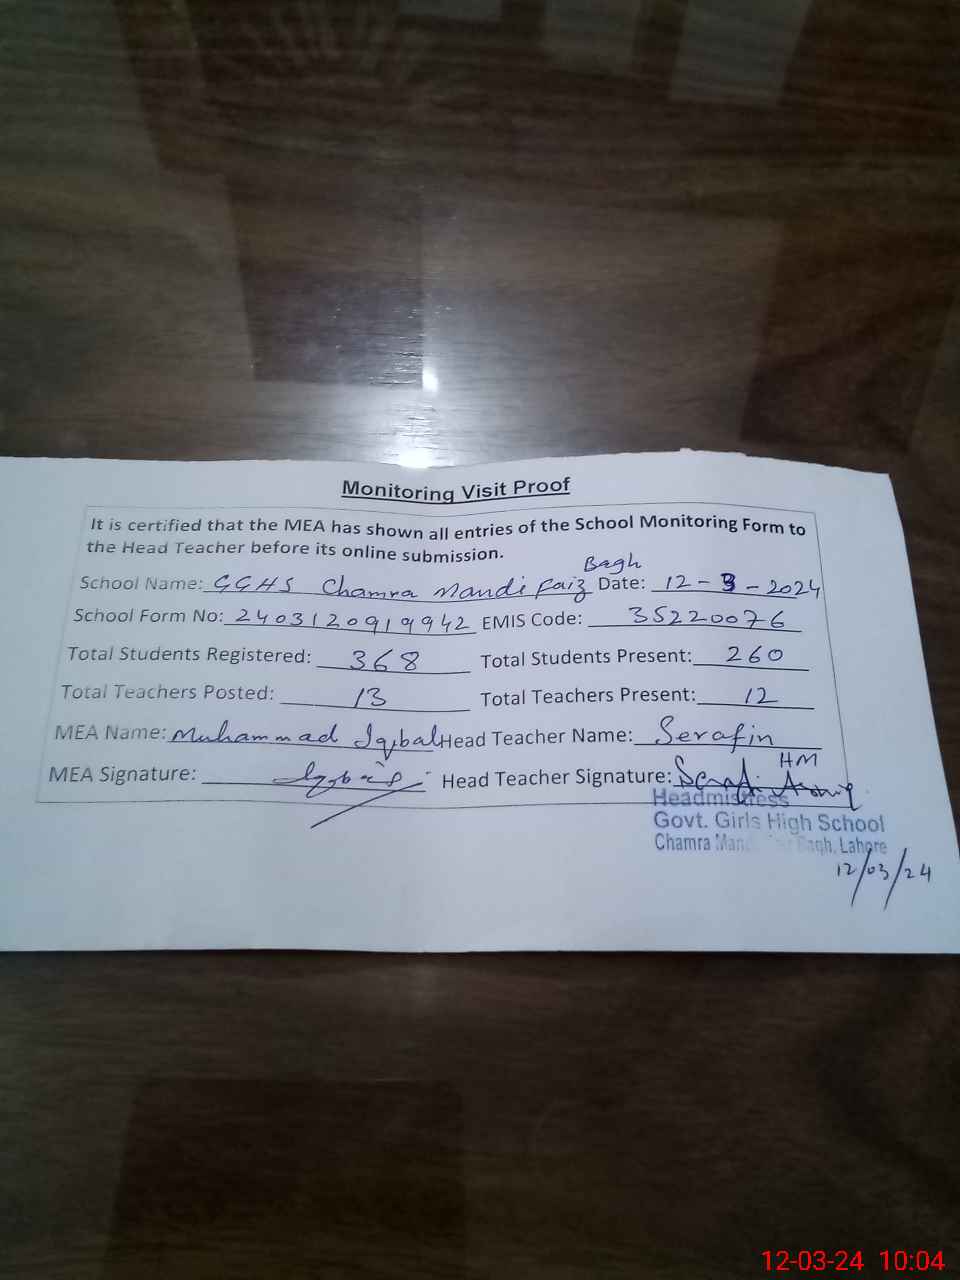 Monitoring Visit Proof
It is certified that the MEA has shown all entries of the School Monitoring Form to
the Head Teacher before its online submission.
School Name: GGHS Chamra Mandi Faiz Bagh Date: 12-3-2024
School Form No: 2403120919942 EMIS Code: 35220076
Total Students Registered: 368 Total Students Present: 260
Total Teachers Posted: 13 Total Teachers Present: 12
MEA Name: Muhammad Iqbal Head Teacher Name: Serafin
HM
MEA Signature: Iqbal Head Teacher Signature:
Headmistress
Govt. Girls High School
Chamra Bagh, Lahore
12/03/24
12-03-24 10:04